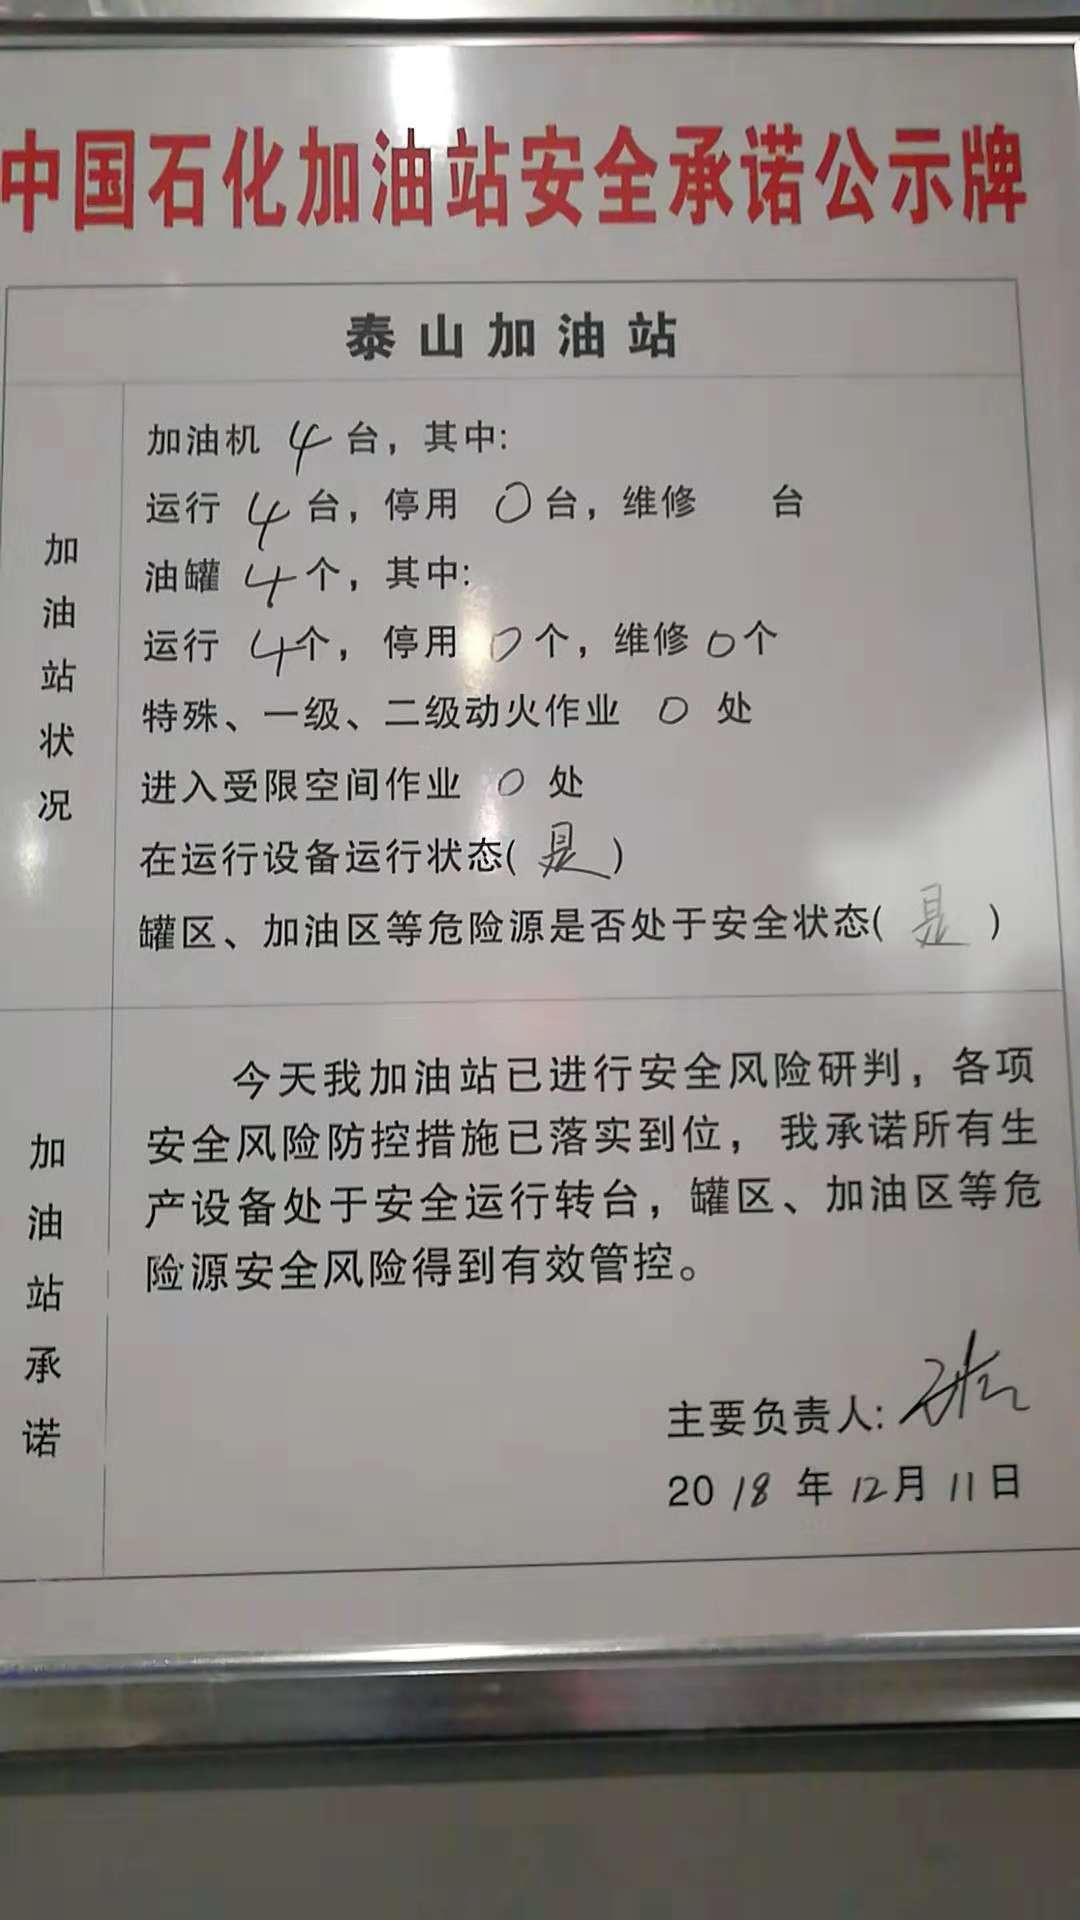 中国石化加油站安全承诺公示牌
泰山加油站
加油站状况
加油机 4 台，其中:
运行 4 台，停用 0 台，维修 台
油罐 4 个，其中:
运行 4个，停用 0 个，维修 0个
特殊、一级、二级动火作业 0 处
进入受限空间作业 0 处
在运行设备运行状态( 是 )
罐区、加油区等危险源是否处于安全状态( 是 )
加油站承诺
今天我加油站已进行安全风险研判，各项
安全风险防控措施已落实到位，我承诺所有生
产设备处于安全运行转台，罐区、加油区等危
险源安全风险得到有效管控。
主要负责人:
2018 年 12月 11日